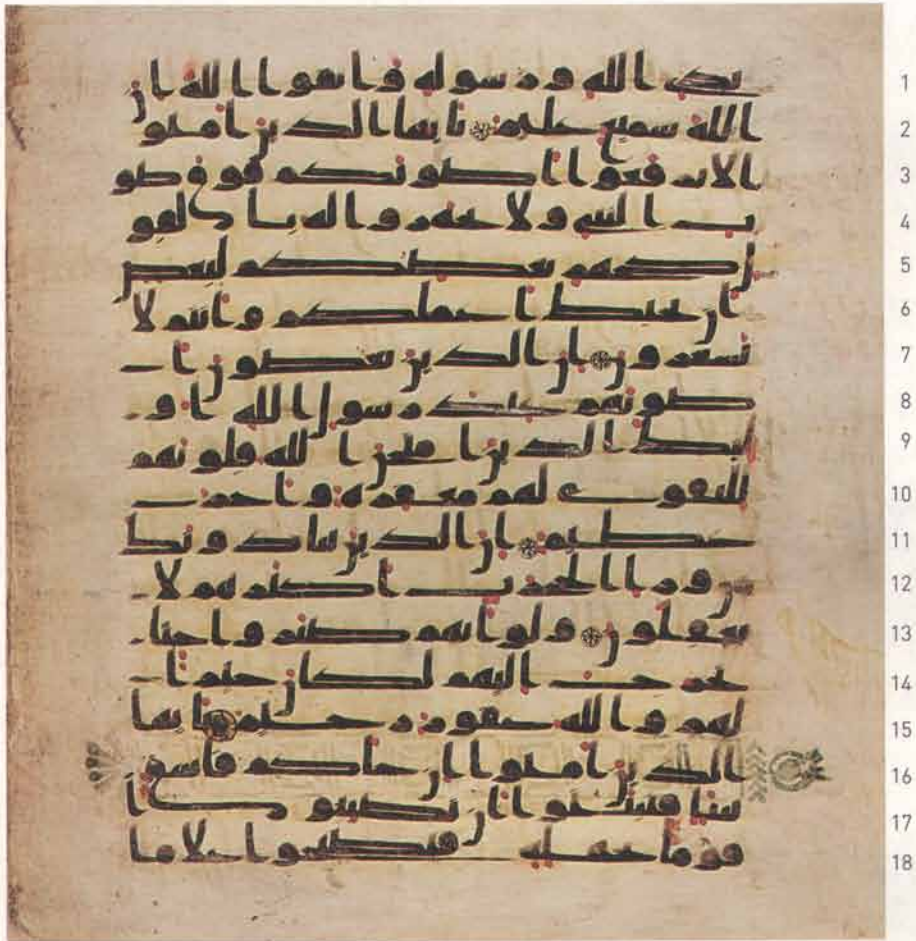 1 يدي الله ورسوله واتقوا الله ان
2 الله سميع عليم يايها الذين امنوا
3 لا ترفعوا اصوتكم فوق صو
4 ت النبي ولا تجهروا له بالقو
5 ل كجهر بعضكم لبعض
6 ان تحبط اعملكم وانتم لا
7 تشعرون ان الذين يغضون ا
8 صوتهم عند رسول الله او
9 لئك الذين امتحن الله قلوبهم
10 للتقوى لهم مغفرة واجر
11 عظيم ان الذين ينادونك
12 من ورا الحجرت اكثرهم لا
13 يعقلون ولو انهم صبروا حتى
14 تخرج اليهم لكان خيرا
15 لهم والله غفور رحيم يايها
16 الذين امنوا ان جاكم فاسق
17 بنبا فتبينوا ان تصيبوا
18 قوما بجهلة فتصبحوا على ما